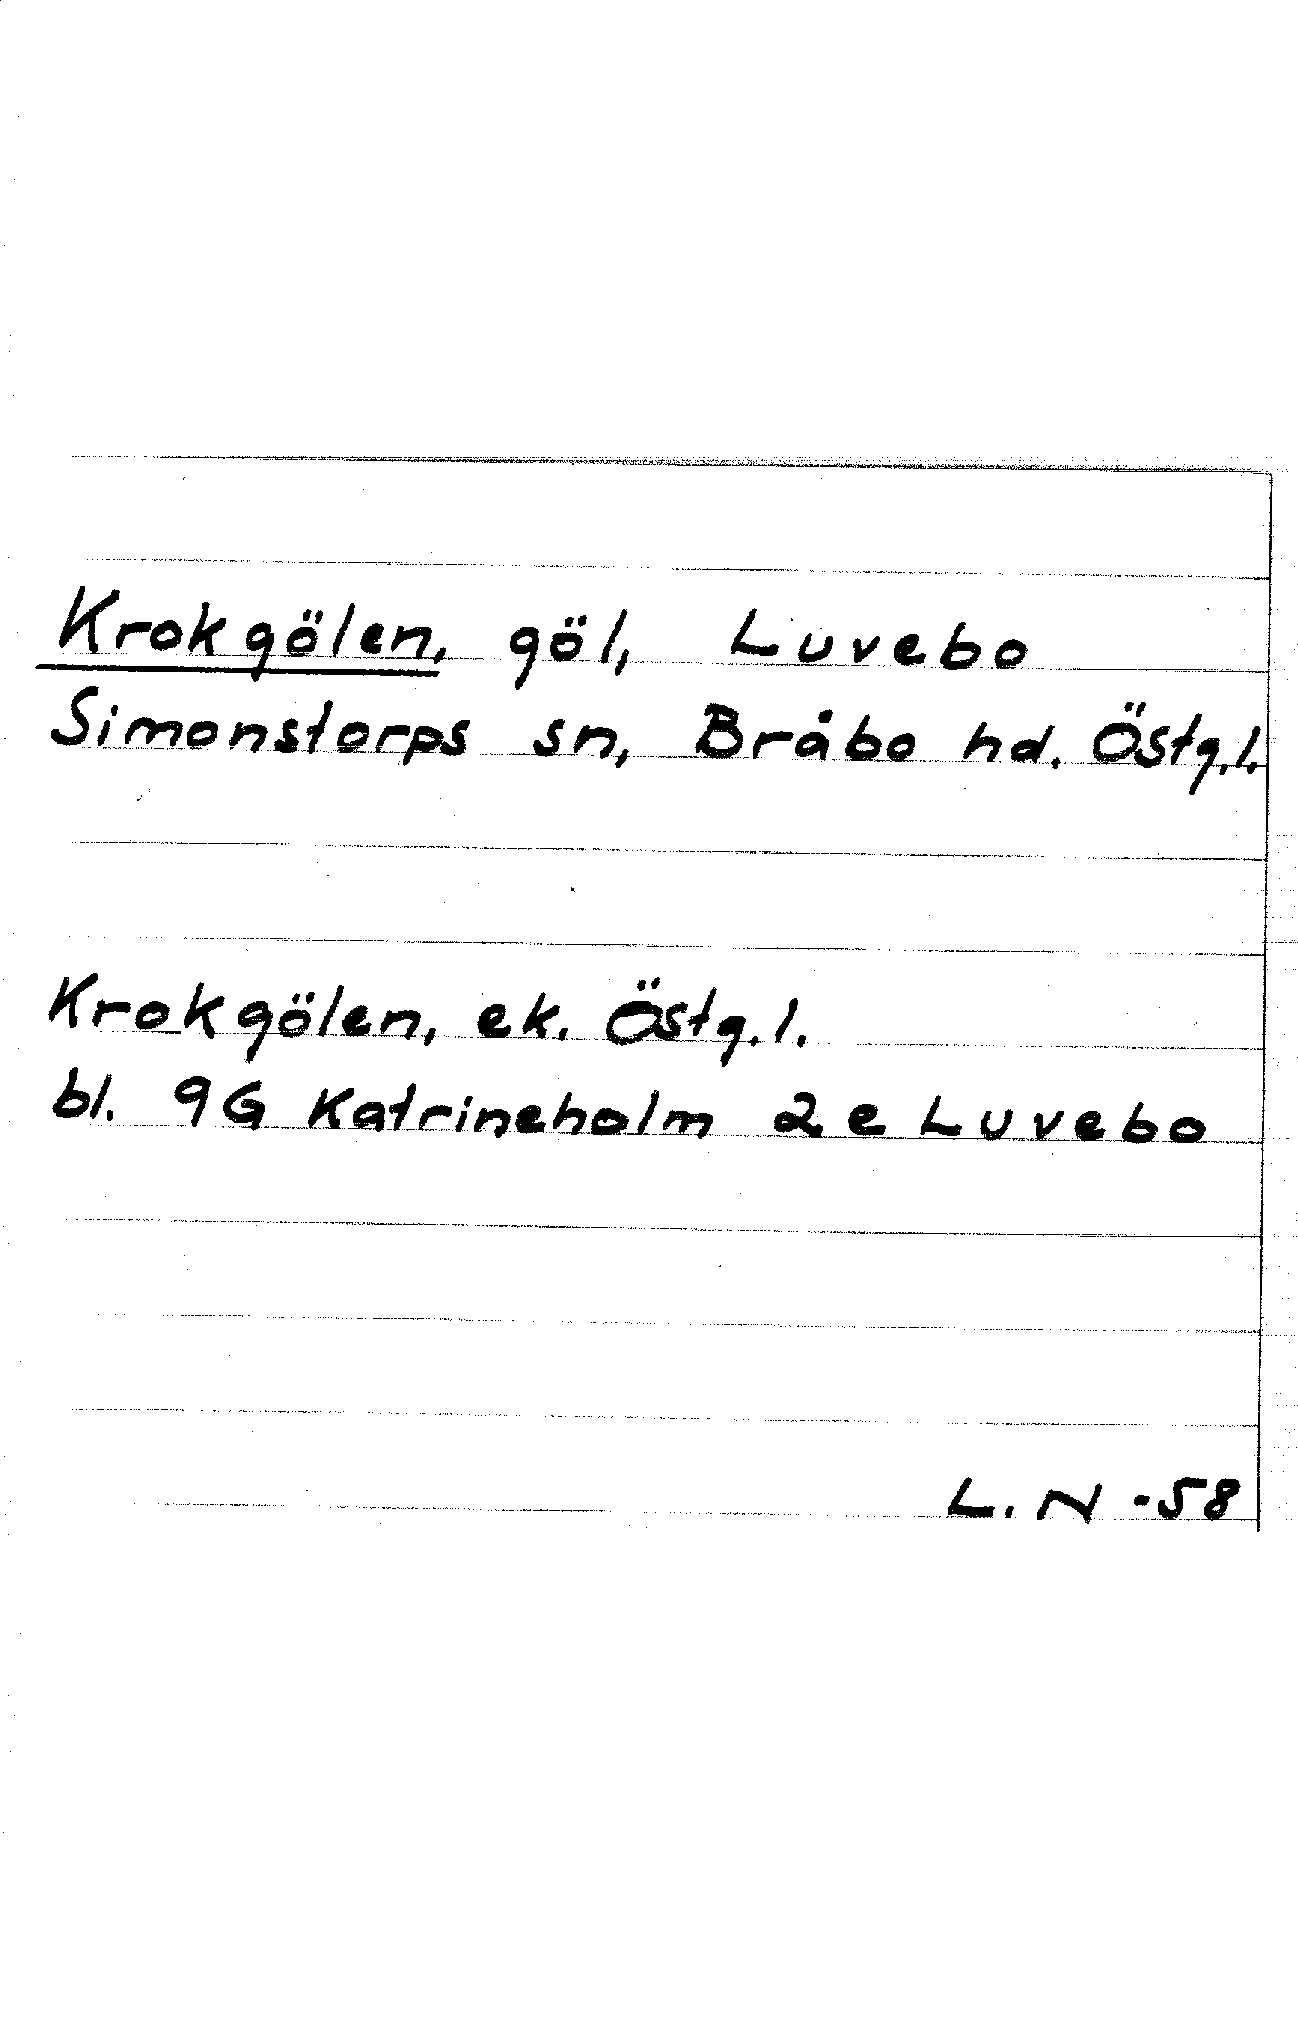 Krokgölen, göl, Luvebo
Simonstorps sn, Bråbo hd. Östg.l.
Krokgölen, ek. Östg.l.
bl. 9G Katrineholm 2e Luvebo
L. N -58